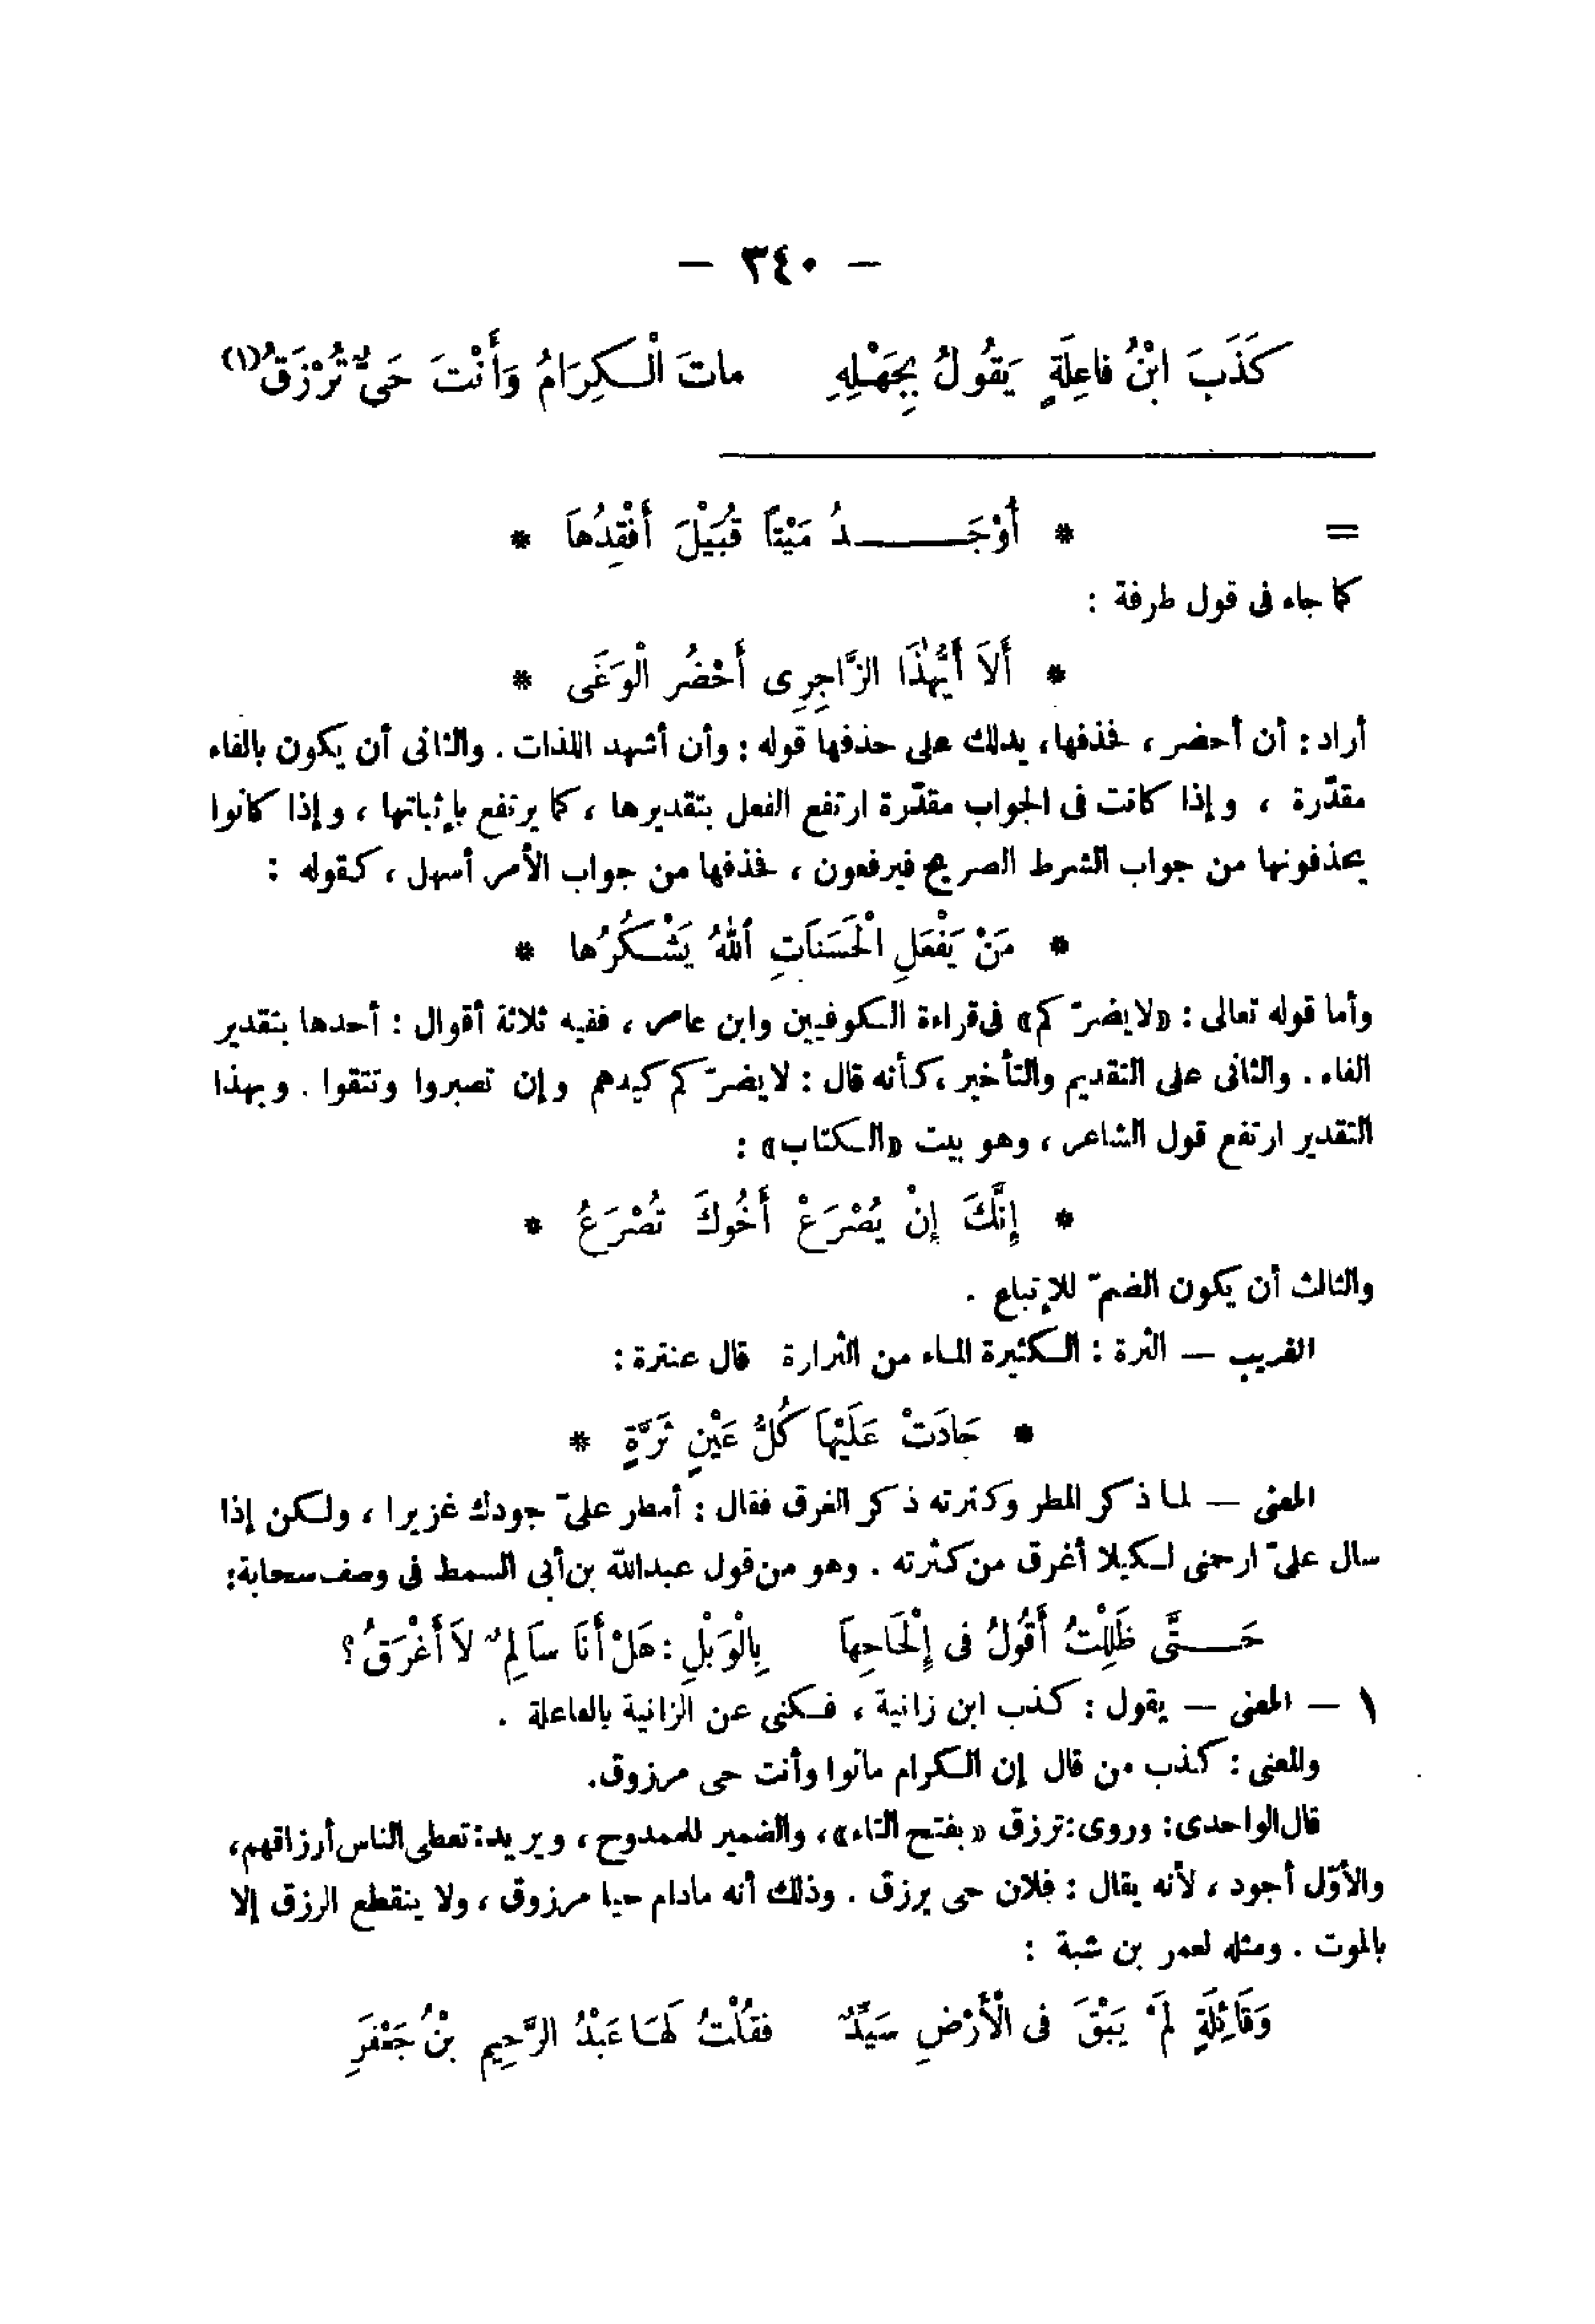 — ٣٤٠ —
كَذَبَ ابْنُ فاعِلَةٍ يَقُولُ بِجَهْلِهِ ماتَ الْكِرَامُ وَأَنْتَ حَىٌّ تُرْزَقُ(١)
= * أُوْجَدُ مَيْتاً قُبَيْلَ أَفْقِدُهاَ *
كما جاء فى قول طرفة :
* أَلاَ أَيُّهٰذَا الزَّاجِرِى أَحْضُر الْوَغَى *
أراد : أن أحضر ، فحذفها، يدلك على حذفها قوله : وأن أشهد اللذات . والثانى أن يكون بالفاء
مقدّرة ، وإذا كانت فى الجواب مقدّرة ارتفع الفعل بتقديرها ، كما يرتفع بإثباتها ، وإذا كانوا
يحذفونها من جواب الشرط الصريح فيرفعون ، فحذفها من جواب الأمر أسهل ، كقوله :
* مَنْ يَفْعَلِ الْحَسَناَتِ اللهُ يَشْكُرُها *
وأما قوله تعالى : «لايضرّكم» فى قراءة الكوفيين وابن عامر ، ففيه ثلاثة أقوال : أحدها بتقدير
الفاء . والثانى على التقديم والتأخير ، كأنه قال : لايضرّكم كيدهم وإن تصبروا وتتقوا . وبهذا
التقدير ارتفع قول الشاعر ، وهو بيت «الكتاب» :
* إِنَّكَ إِنْ يُصْرَعْ أَخُوكَ تُصْرَعُ *
والثالث أن يكون الضمّ للإتباع .
الغريب — الثرة : الكثيرة الماء من الثرارة قال عنترة :
* جَادَتْ عَلَيْهاَ كُلُّ عَيْنٍ ثَرَّةٍ *
المعنى — لما ذكر المطر وكثرته ذكر الغرق فقال : أمطر علىّ جودك غزيرا ، ولكن إذا
سال علىّ ارحمنى لكيلا أغرق من كثرته . وهو من قول عبدالله بن أبى السمط فى وصف سحابة:
حَتَّى ظَلِلْتُ أَقُولُ فى إِلْحَاحِهاَ بِالْوَبْلِ : هَلْ أَنَا ساَلِمٌ لاَ أَغْرَقُ ؟
١ — المعنى — يقول : كذب ابن زانية ، فكنى عن الزانية بالفاعلة .
والمعنى : كذب من قال إن الكرام ماتوا وأنت حى مرزوق.
قال الواحدى: وروى: ترزق «بفتح التاء»، والضمير للممدوح ، ويريد: تعطى الناس أرزاقهم،
والأوّل أجود ، لأنه يقال : فلان حى يرزق . وذلك أنه مادام حيا مرزوق ، ولا ينقطع الرزق إلا
بالموت . ومثله لعمر بن شبة :
وَقَائِلَةٍ لَمْ يَبْقَ فى الْأَرْضِ سَيِّدٌ فقُلْتُ لَهَا عَبْدُ الرَّحِيمِ بْنُ جَعْفَرِ